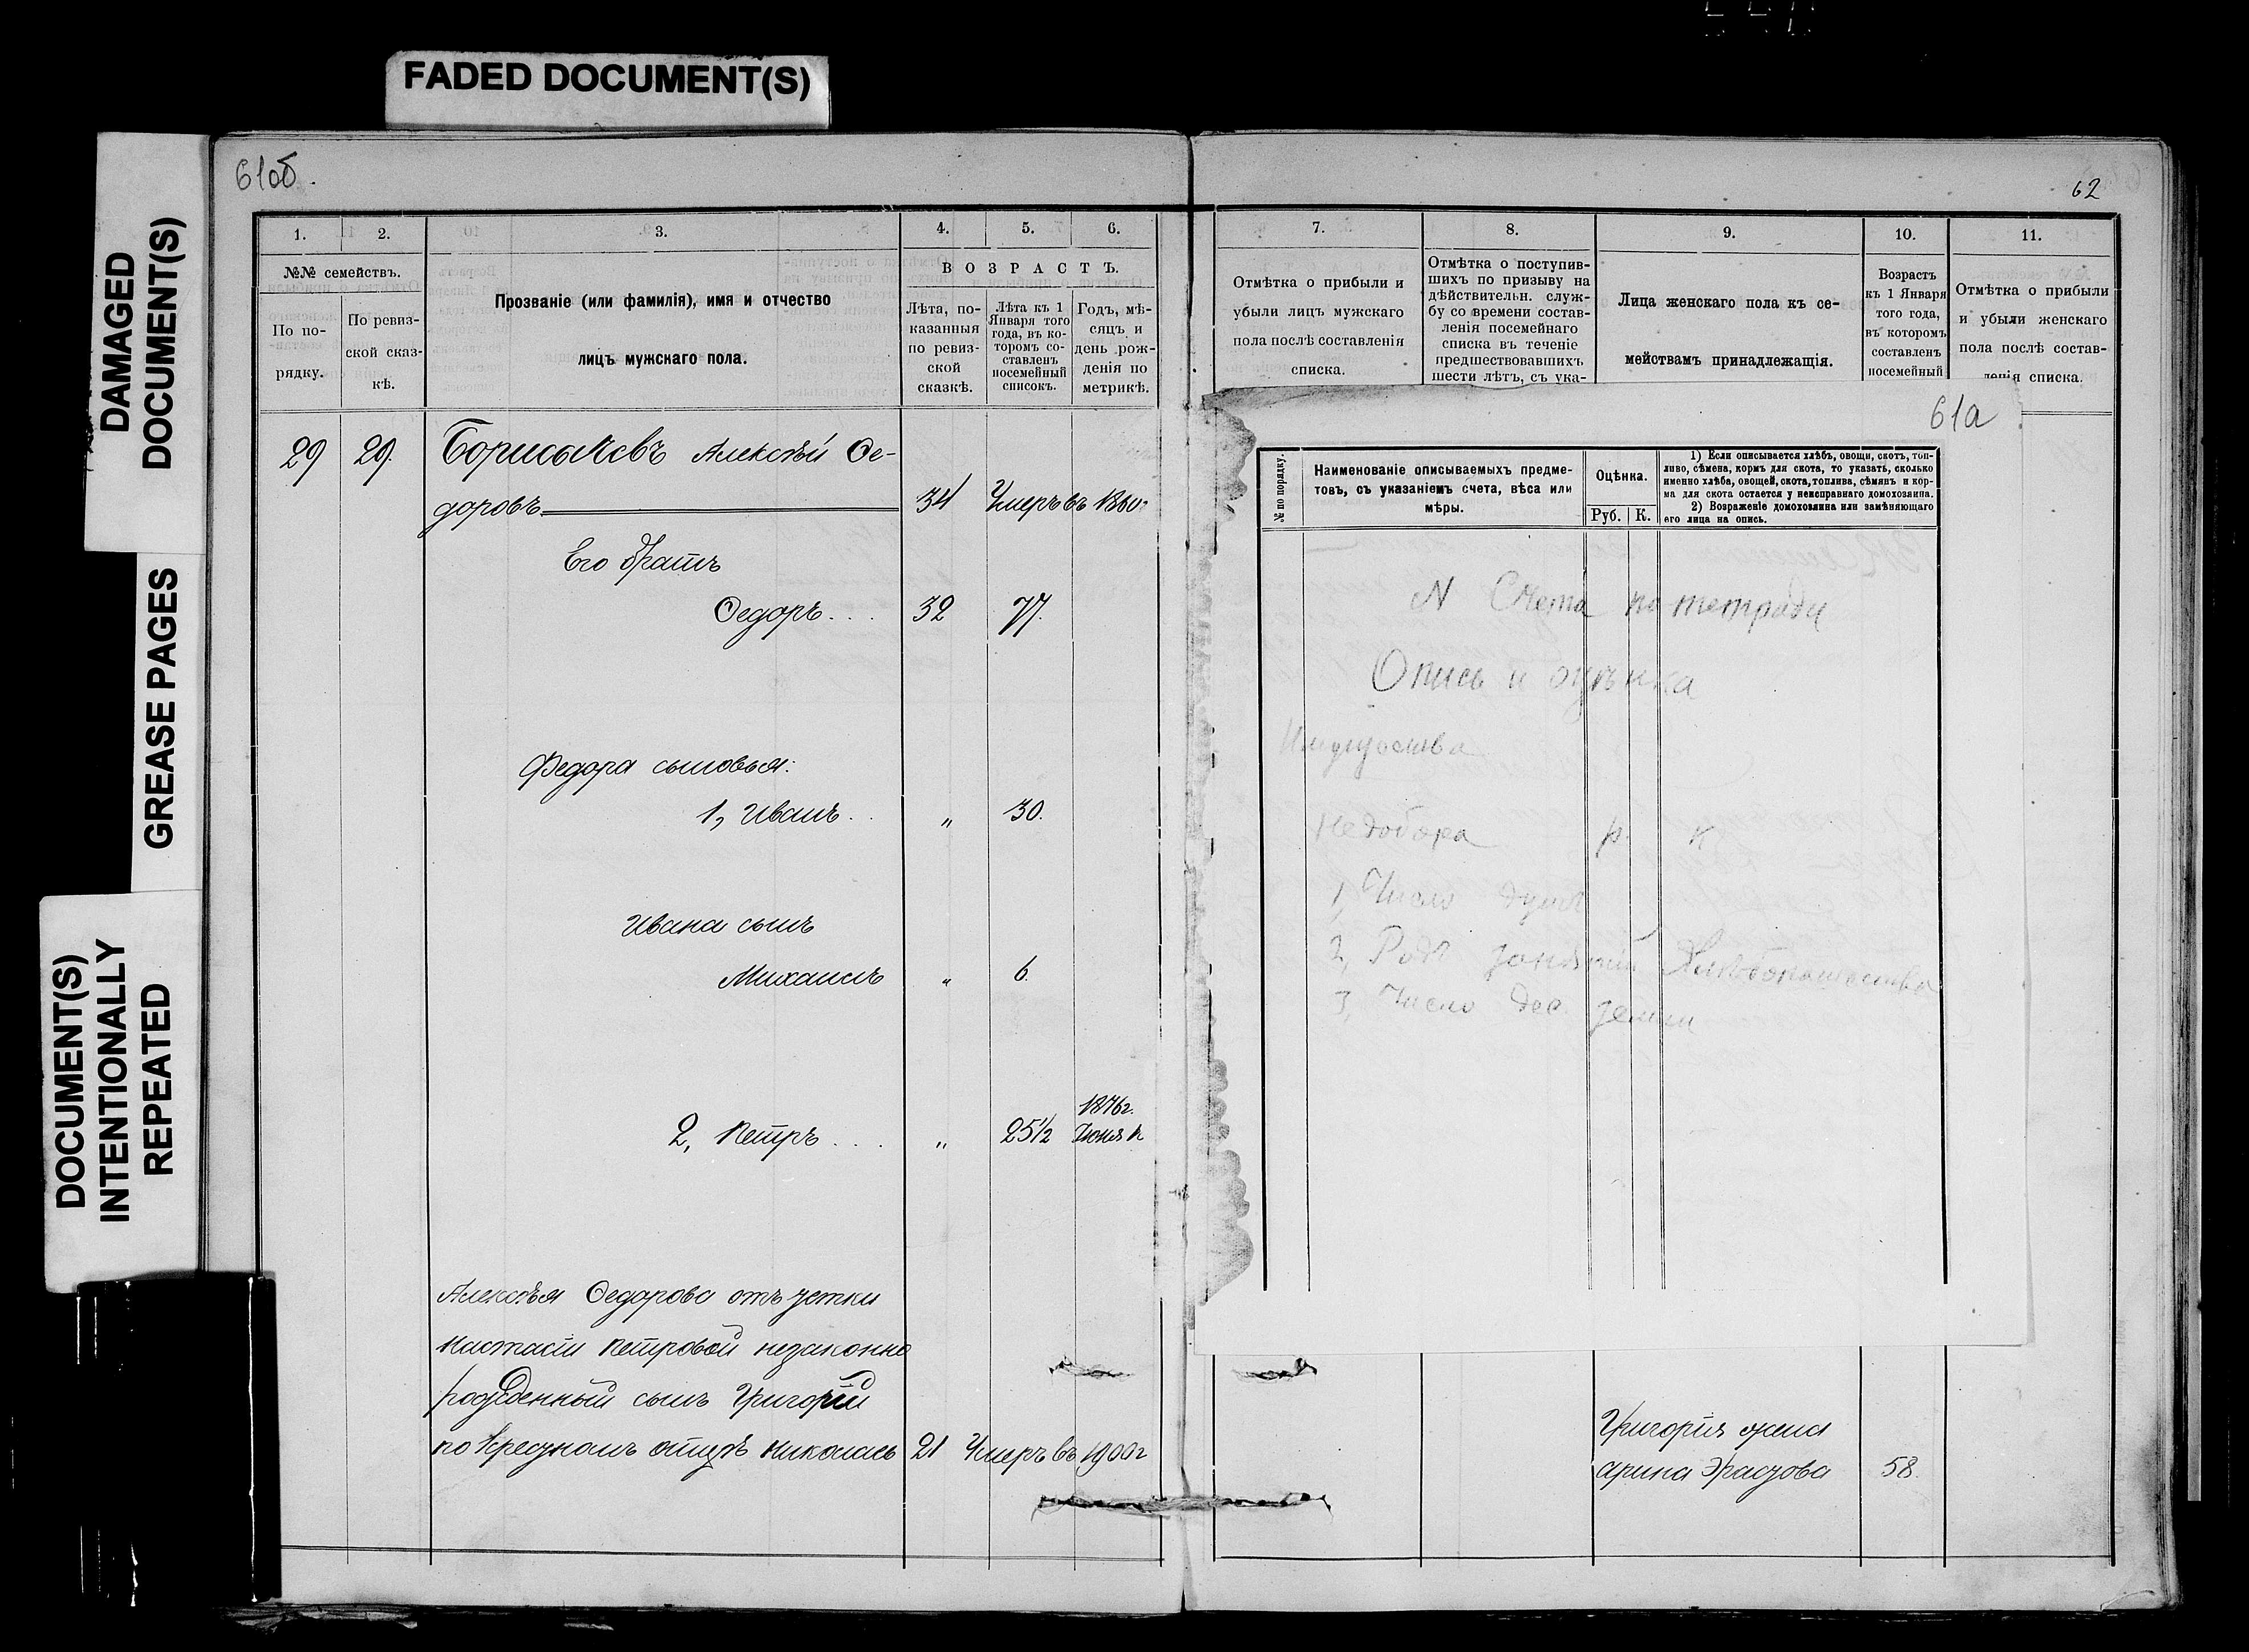 FADED DOCUMENT(S)
DAMAGED
DOCUMENT(S)
GREASE PAGES
DOCUMENT(S)
INTENTIONALLY
REPEATED
61об.
1. 2. 3. 4. 5. 6.
№№ семействъ.
По по-
рядку.
По ревиз-
ской сказ-
кѣ.
Прозваніе (или фамилія), имя и отчество
лицъ мужскаго пола.
ВОЗРАСТЪ.
Лѣта, по-
казанныя
по ревиз-
ской
сказкѣ.
Лѣта къ 1
Января того
года, въ ко-
торомъ со-
ставленъ
посемейный
списокъ.
Годъ, мѣ-
сяцъ и
день рож-
денія по
метрикѣ.
29 29. Алексѣй Ѳе-
доровъ 34 Умеръ въ 1860г
Его братъ
Ѳедоръ . . . 32 77.
Федора сыновья:
1, Иванъ . . „ 30.
Ивана сынъ
Михаилъ „ 6.
1876г.
2, Петръ . . . „ 25½ Іюня
Алексѣя Ѳедорова отъ
Настасіи Петровой незаконно
рожденный сынъ Григорій
по отцѣ Николаевъ 21 Умеръ въ 1900г
62
7. 8. 9. 10. 11.
Отмѣтка о прибыли и
убыли лицъ мужскаго
пола послѣ составленія
списка.
Отмѣтка о поступив-
шихъ по призыву на
дѣйствительн. служ-
бу со времени состав-
ленія посемейнаго
списка въ теченіе
предшествовавшихъ
шести лѣтъ, съ ука-
Лица женскаго пола къ се-
мействамъ принадлежащія.
Возрастъ
къ 1 Января
того года,
въ которомъ
составленъ
посемейный
Отмѣтка о прибыли
и убыли женскаго
пола послѣ состав-
ленія списка.
61а
№ по порядку.
Наименованіе описываемыхъ предме-
товъ, съ указаніемъ счета, вѣса или
мѣры.
Оцѣнка.
Руб. К.
1) Если описывается хлѣбъ, овощи, скотъ, топ-
ливо, сѣмена, кормъ для скота, то указать, сколько
именно хлѣба, овощей, скота, топлива, сѣмянъ и кор-
ма для скота остается у неисправнаго домохозяина.
2) Возраженіе домохозяина или замѣняющаго
его лица на опись.
N Счета по тетради
Опись и оцѣнка
Имущества
Недобора р. к
1, Число душъ
2, Родъ занятій Хлѣбопашества
3, Число дес земли
Григорія жена
Арина 58.